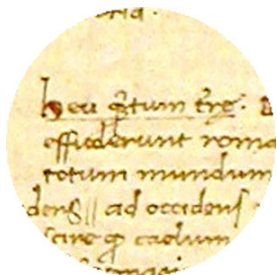 heu q̄tum t̄re.
effuderunt roma
totum mundum
ad occidens
scire
caelum